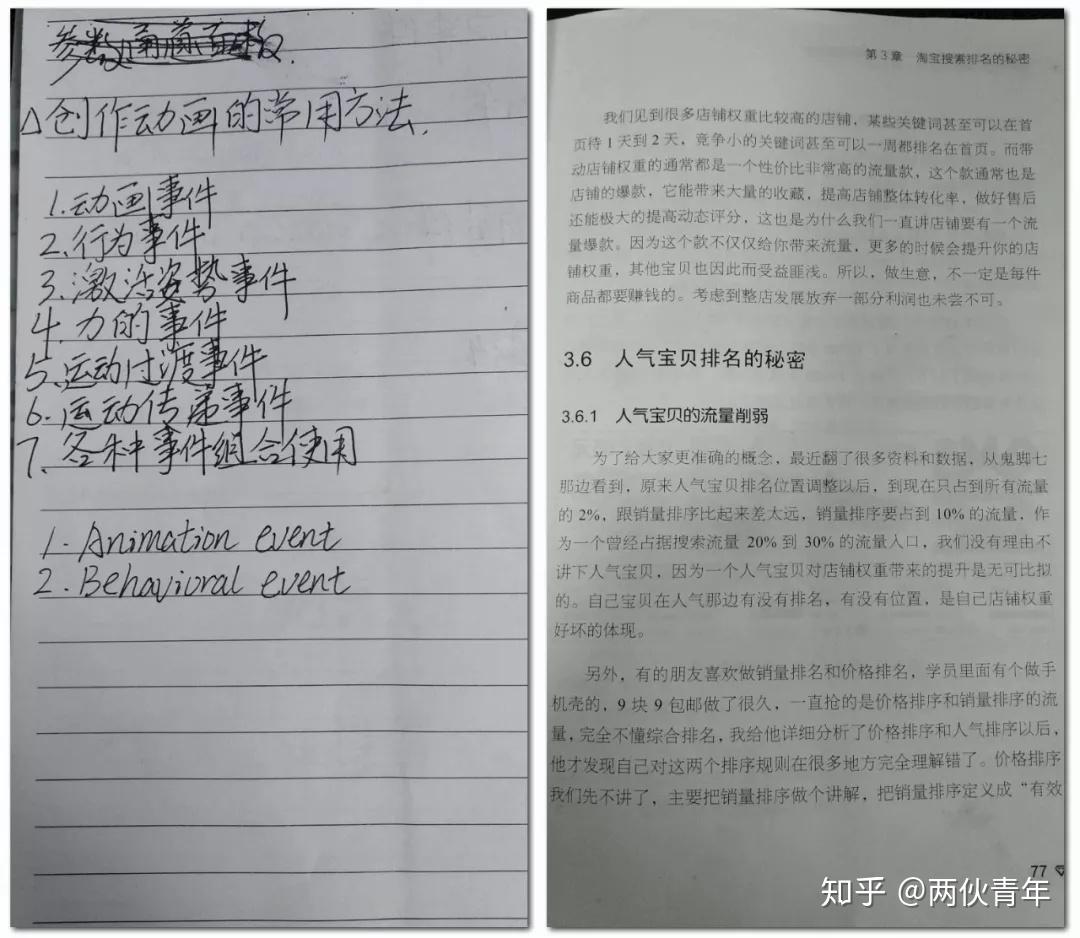 参数
△创作动画的常用方法.
1.动画事件
2.行为事件
3.激活姿势事件
4.力的事件
5.运动过渡事件
6.运动传递事件
7.各种事件组合使用
1. Animation event
2. Behavioral event
第3章 淘宝搜索排名的秘密
我们见到很多店铺权重比较高的店铺，某些关键词甚至可以在首
页待1天到2天，竞争小的关键词甚至可以一周都排名在首页。而带
动店铺权重的通常都是一个性价比非常高的流量款，这个款通常也是
店铺的爆款，它能带来大量的收藏，提高店铺整体转化率，做好售后
还能极大的提高动态评分，这也是为什么我们一直讲店铺要有一个流
量爆款。因为这个款不仅仅给你带来流量，更多的时候会提升你的店
铺权重，其他宝贝也因此而受益匪浅。所以，做生意，不一定是每件
商品都要赚钱的。考虑到整店发展放弃一部分利润也未尝不可。
3.6 人气宝贝排名的秘密
3.6.1 人气宝贝的流量削弱
为了给大家更准确的概念，最近翻了很多资料和数据，从鬼脚七
那边看到，原来人气宝贝排名位置调整以后，到现在只占到所有流量
的2%，跟销量排序比起来差太远，销量排序要占到10%的流量，作
为一个曾经占据搜索流量20%到30%的流量入口，我们没有理由不
讲下人气宝贝，因为一个人气宝贝对店铺权重带来的提升是无可比拟
的。自己宝贝在人气那边有没有排名，有没有位置，是自己店铺权重
好坏的体现。
另外，有的朋友喜欢做销量排名和价格排名，学员里面有个做手
机壳的，9块9包邮做了很久，一直抢的是价格排序和销量排序的流
量，完全不懂综合排名，我给他详细分析了价格排序和人气排序以后，
他才发现自己对这两个排序规则在很多地方完全理解错了。价格排序
我们先不讲了，主要把销量排序做个讲解，把销量排序定义成“有效
77
知乎 @两伙青年